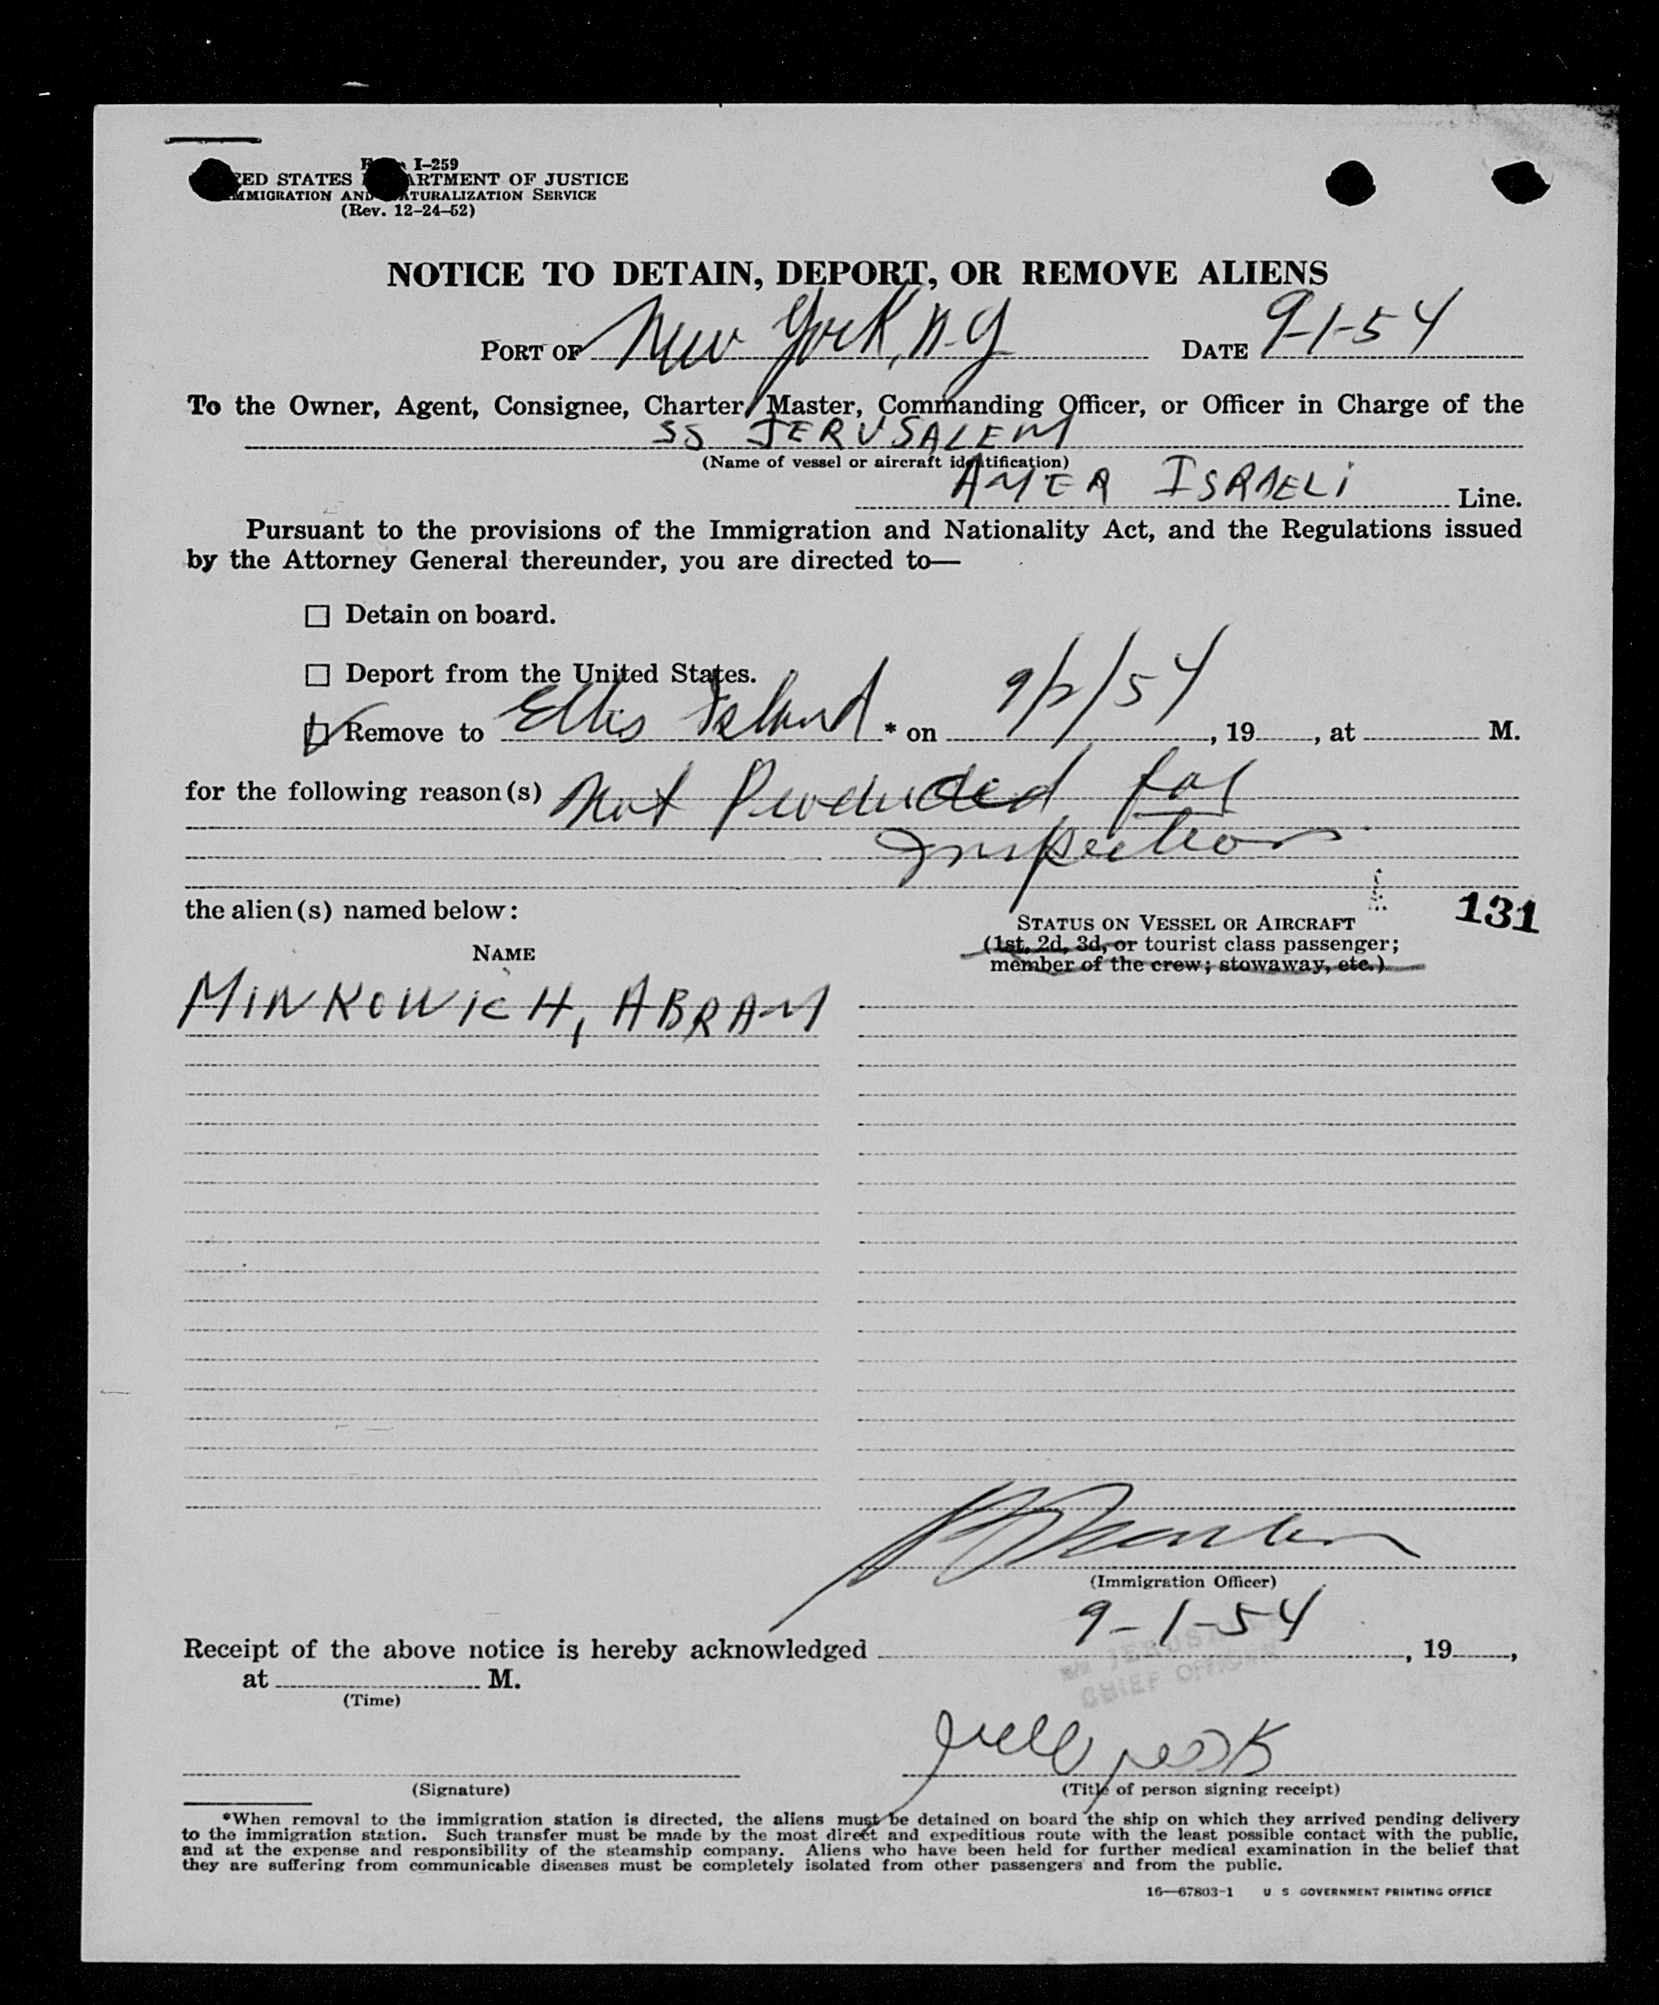 Form I-259
UNITED STATES DEPARTMENT OF JUSTICE
IMMIGRATION AND NATURALIZATION SERVICE
(Rev. 12-24-52)
NOTICE TO DETAIN, DEPORT, OR REMOVE ALIENS
PORT OF New York, N.Y DATE 9-1-54
To the Owner, Agent, Consignee, Charter, Master, Commanding Officer, or Officer in Charge of the
SS JERUSALEM
(Name of vessel or aircraft identification)
AMER ISRAELI Line.
Pursuant to the provisions of the Immigration and Nationality Act, and the Regulations issued
by the Attorney General thereunder, you are directed to—
☐ Detain on board.
☐ Deport from the United States.
☑ Remove to Ellis Island * on 9/2/54, 19___, at ___ M.
for the following reason(s) Not Produced for
Inspection
the alien(s) named below:
131
NAME
STATUS ON VESSEL OR AIRCRAFT
(1st, 2d, 3d, or tourist class passenger;
member of the crew; stowaway, etc.)
MINKOWICH, ABRAM
(Immigration Officer)
9-1-54
Receipt of the above notice is hereby acknowledged ___, 19___,
JERUSALEM
CHIEF OFFICER
at ___ M.
(Time)
(Signature)
(Title of person signing receipt)
*When removal to the immigration station is directed, the aliens must be detained on board the ship on which they arrived pending delivery
to the immigration station. Such transfer must be made by the most direct and expeditious route with the least possible contact with the public,
and at the expense and responsibility of the steamship company. Aliens who have been held for further medical examination in the belief that
they are suffering from communicable diseases must be completely isolated from other passengers and from the public.
16—67803-1 U S GOVERNMENT PRINTING OFFICE